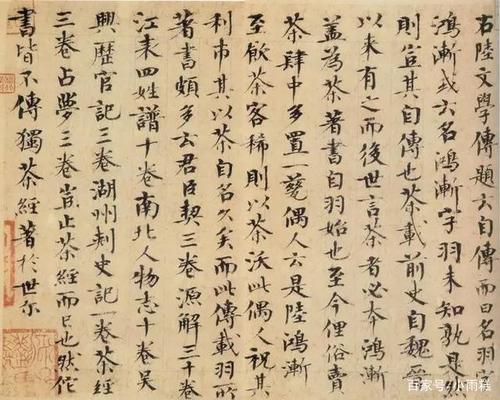 右陸文學傳題云自傳而曰名羽字
鴻漸或云名鴻漸字羽未知孰是然
則豈其自傳也茶載前史自魏晉
以来有之而後世言茶者必本鴻漸
蓋為茶著書自羽始也至今俚俗賣
茶肆中多置一甆偶人云是陸鴻漸
至飲茶客稀則以茶沃此偶人祝其
利市其以茶自名久矣而此傳載羽所
著書頗多云君臣契三卷源解三十卷
江表四姓譜十卷南北人物志十卷吳
興歷官記三卷湖州刺史記一卷茶經
三卷占夢三卷豈止茶經而已也然佗
書皆不傳獨茶經著於世尔
百家号/小雨糕